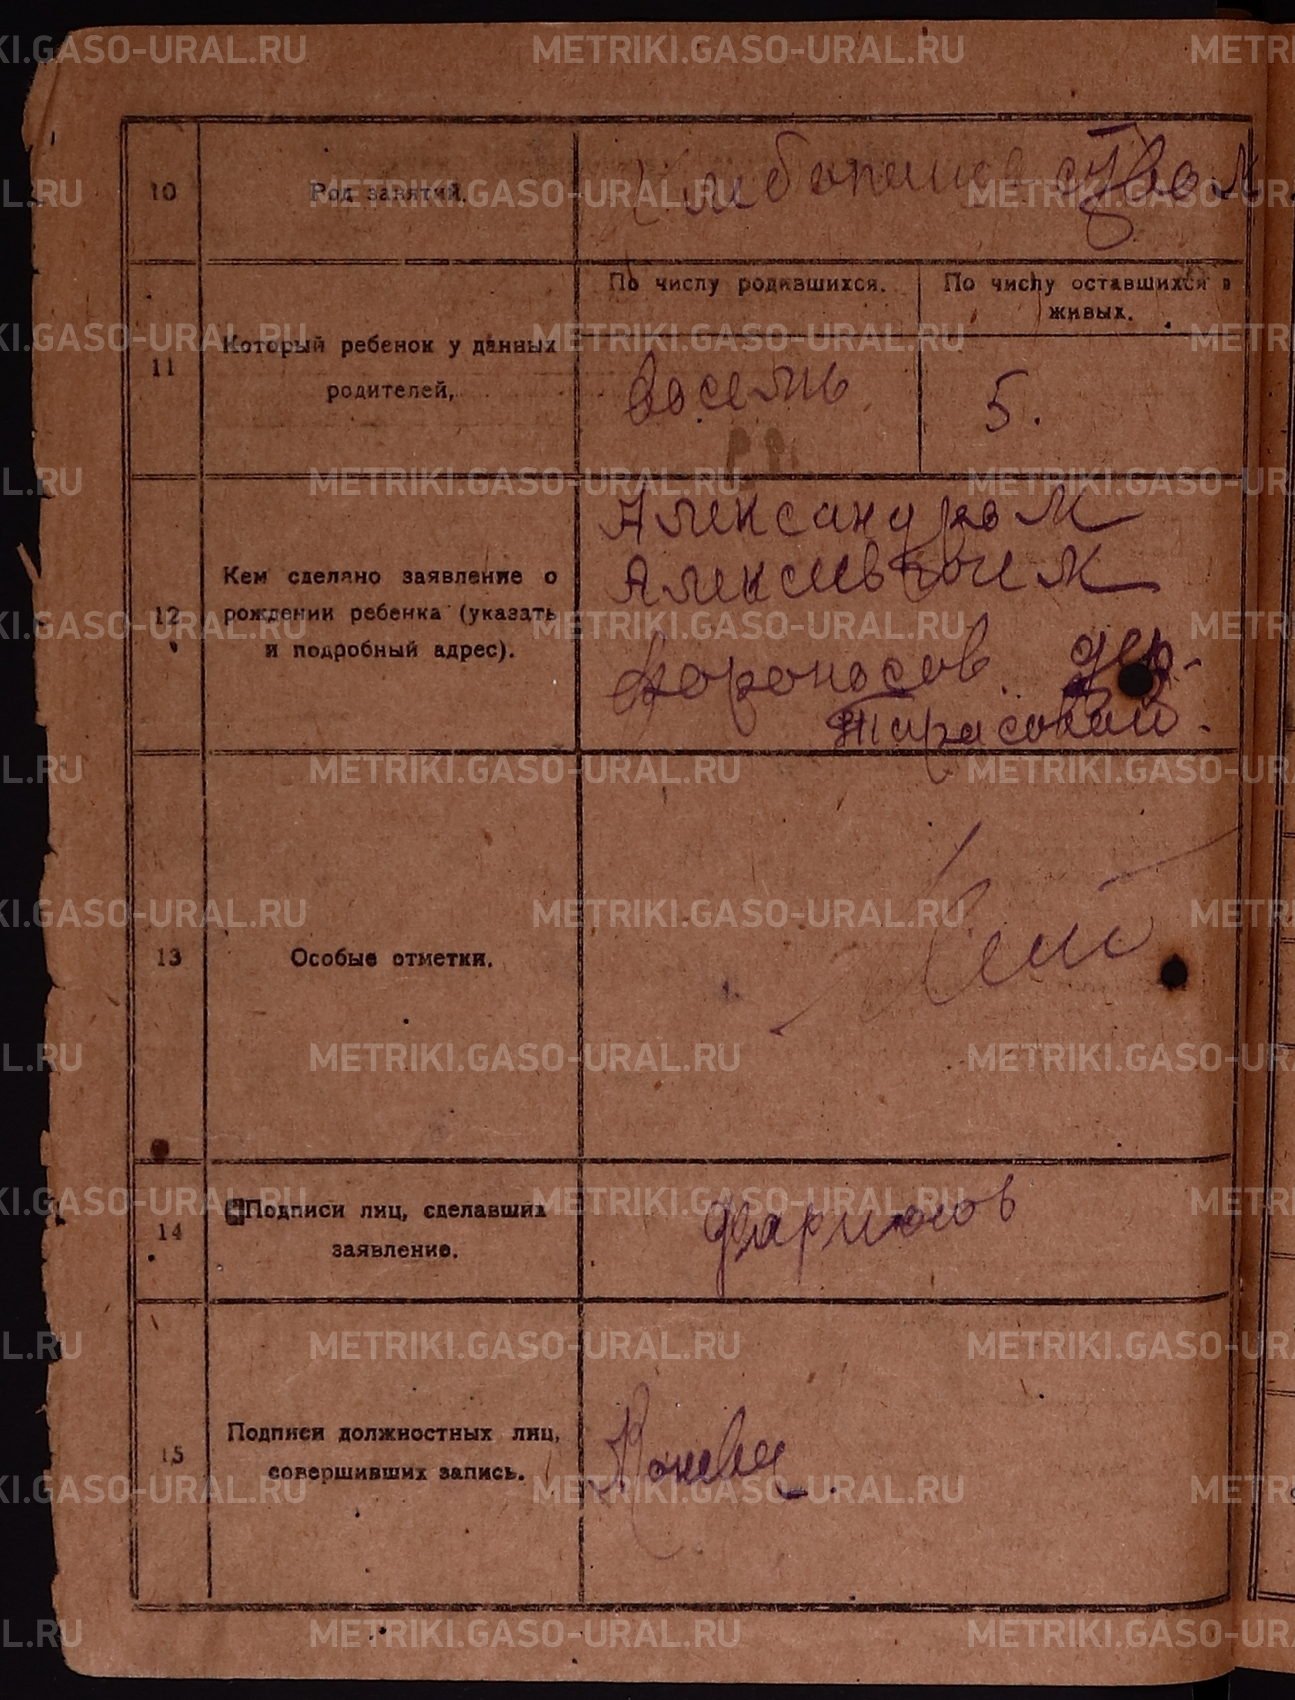 10
Род занятий.
Хлебопашеством
11
Который ребенок у данных
родителей,
По числу родившихся.
По числу оставшихся в
живых.
восемь
5.
12
Кем сделано заявление о
рождении ребенка (указать
и подробный адрес).
Александром
Алексеевичем
дер.
13
Особые отметки.
14
Подписи лиц, сделавших
заявление.
15
Подписи должностных лиц,
совершивших запись.
METRIKI.GASO-URAL.RU